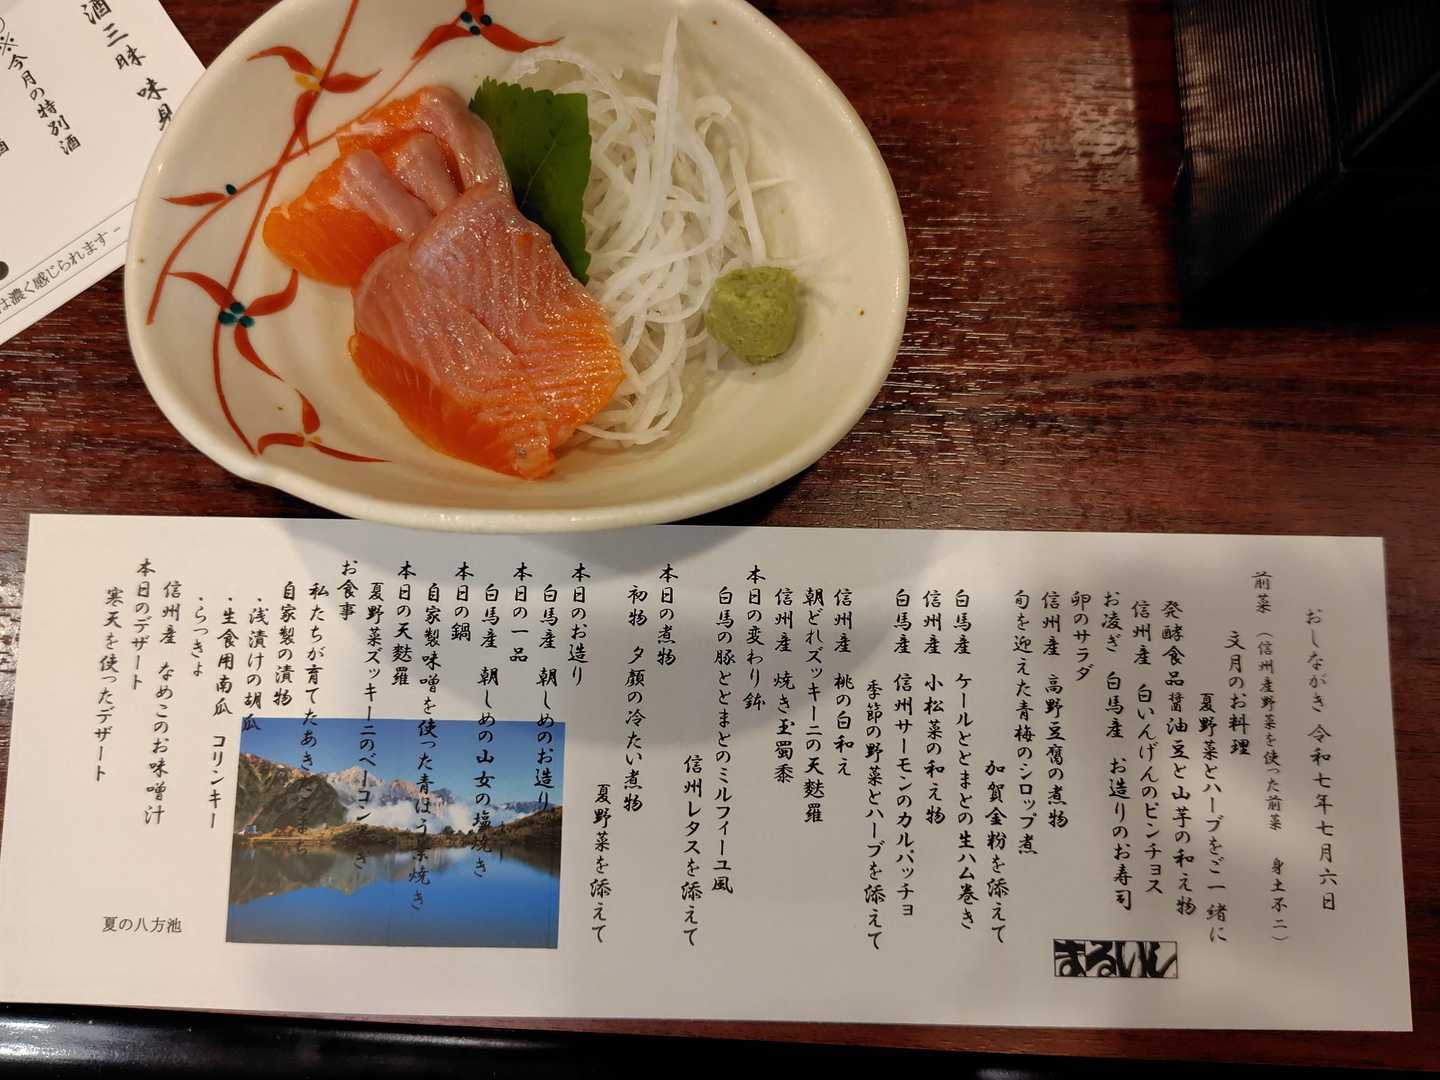 酒三昧 味身
※今月の特別酒
酒
は濃く感じられます -
おしながき 令和七年七月六日
前菜 （信州産野菜を使った前菜 身土不二）
文月のお料理
夏野菜とハーブをご一緒に
発酵食品 醤油豆と山芋の和え物
信州産 白いんげんのピンチョス
お凌ぎ 白馬産 お造りのお寿司
卵のサラダ
信州産 高野豆腐の煮物
旬を迎えた青梅のシロップ煮
加賀金粉を添えて
白馬産 ケールととまとの生ハム巻き
信州産 小松菜の和え物
白馬産 信州サーモンのカルパッチョ
季節の野菜とハーブを添えて
信州産 桃の白和え
朝どれズッキーニの天麩羅
信州産 焼き玉蜀黍
本日の変わり鉢
白馬の豚ととまとのミルフィーユ風
信州レタスを添えて
本日の煮物
初物 夕顔の冷たい煮物
夏野菜を添えて
本日のお造り
白馬産 朝しめのお造り
本日の一品
白馬産 朝しめの山女の塩焼き
本日の鍋
自家製味噌を使った青ほう葉焼き
本日の天麩羅
夏野菜ズッキーニのベーコン巻き
お食事
私たちが育てたあきたこまち
自家製の漬物
・浅漬けの胡瓜
・生食用南瓜 コリンキー
・らっきょ
信州産 なめこのお味噌汁
本日のデザート
寒天を使ったデザート
夏の八方池
まるいし